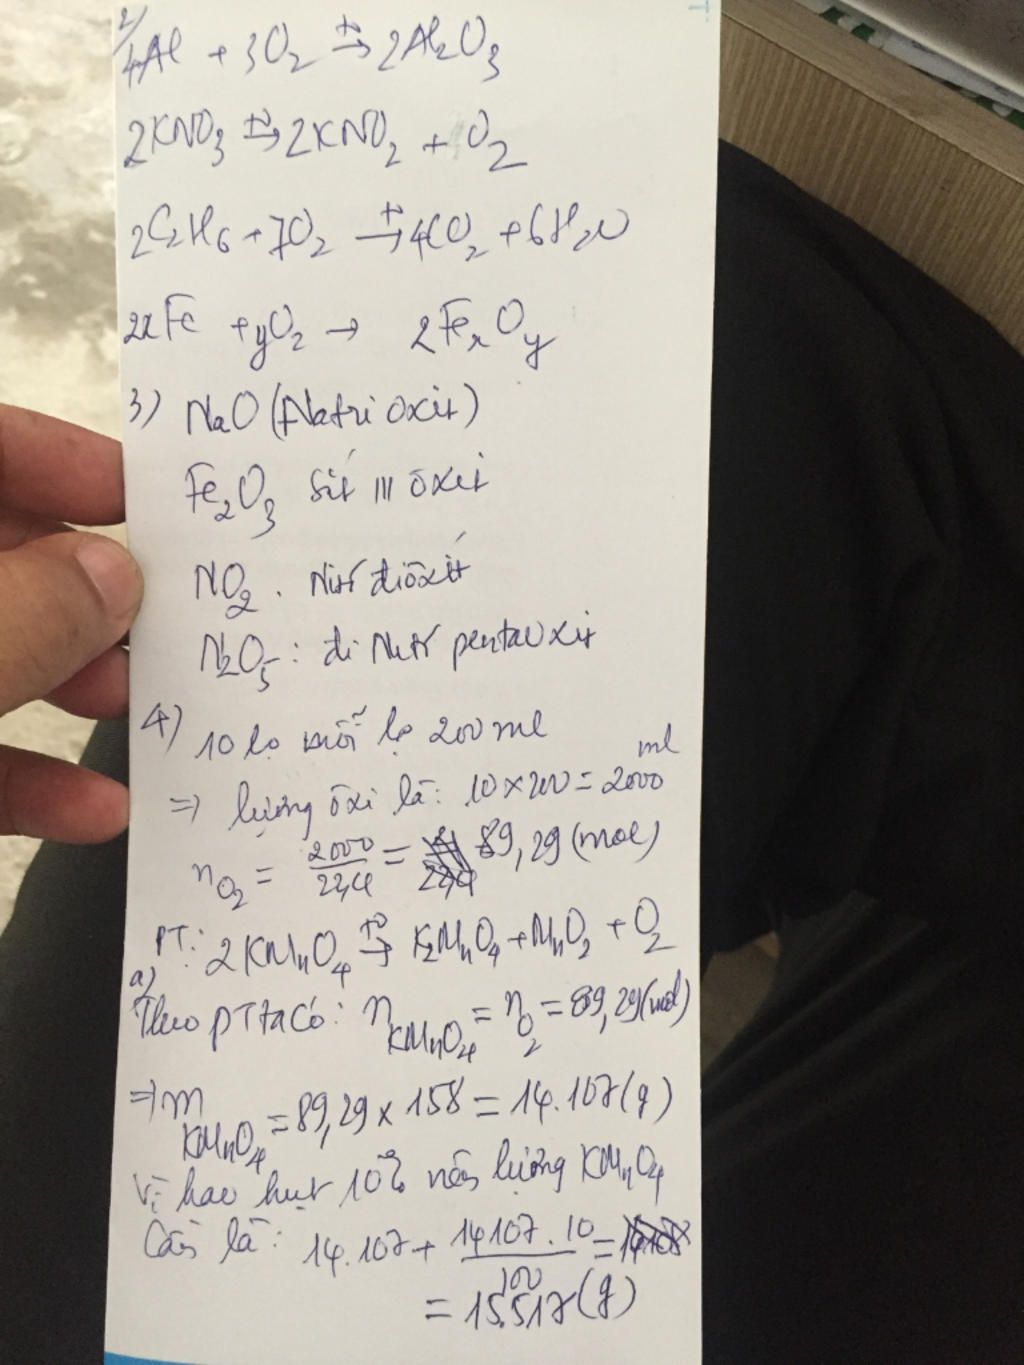 2/
4Al + 3O2 t° → 2Al2O3
2KNO3 t° → 2KNO2 + O2
2C2H6 + 7O2 t° → 4CO2 + 6H2O
2xFe + yO2 → 2FexOy
3) NaO (Natri oxit)
Fe2O3 Sắt III ôxit
NO2. Nitơ điôxit
N2O5: đi Nitơ pentaoxit
4) 10 lọ mỗi lọ 200 ml
=> lượng ôxi là: 10 x 200 = 2000 ml
nO2 = 2000/22,4 = 89,29 (mol)
PT: 2KMnO4 t° → K2MnO4 + MnO2 + O2
a)
Theo PT ta có: nKMnO4 = nO2 = 89,29 (mol)
=> mKMnO4 = 89,29 x 158 = 14.107 (g)
Vì hao hụt 10% nên lượng KMnO4
Cần là: 14.107 + 14107 . 10/100 =
= 15.517 (g)